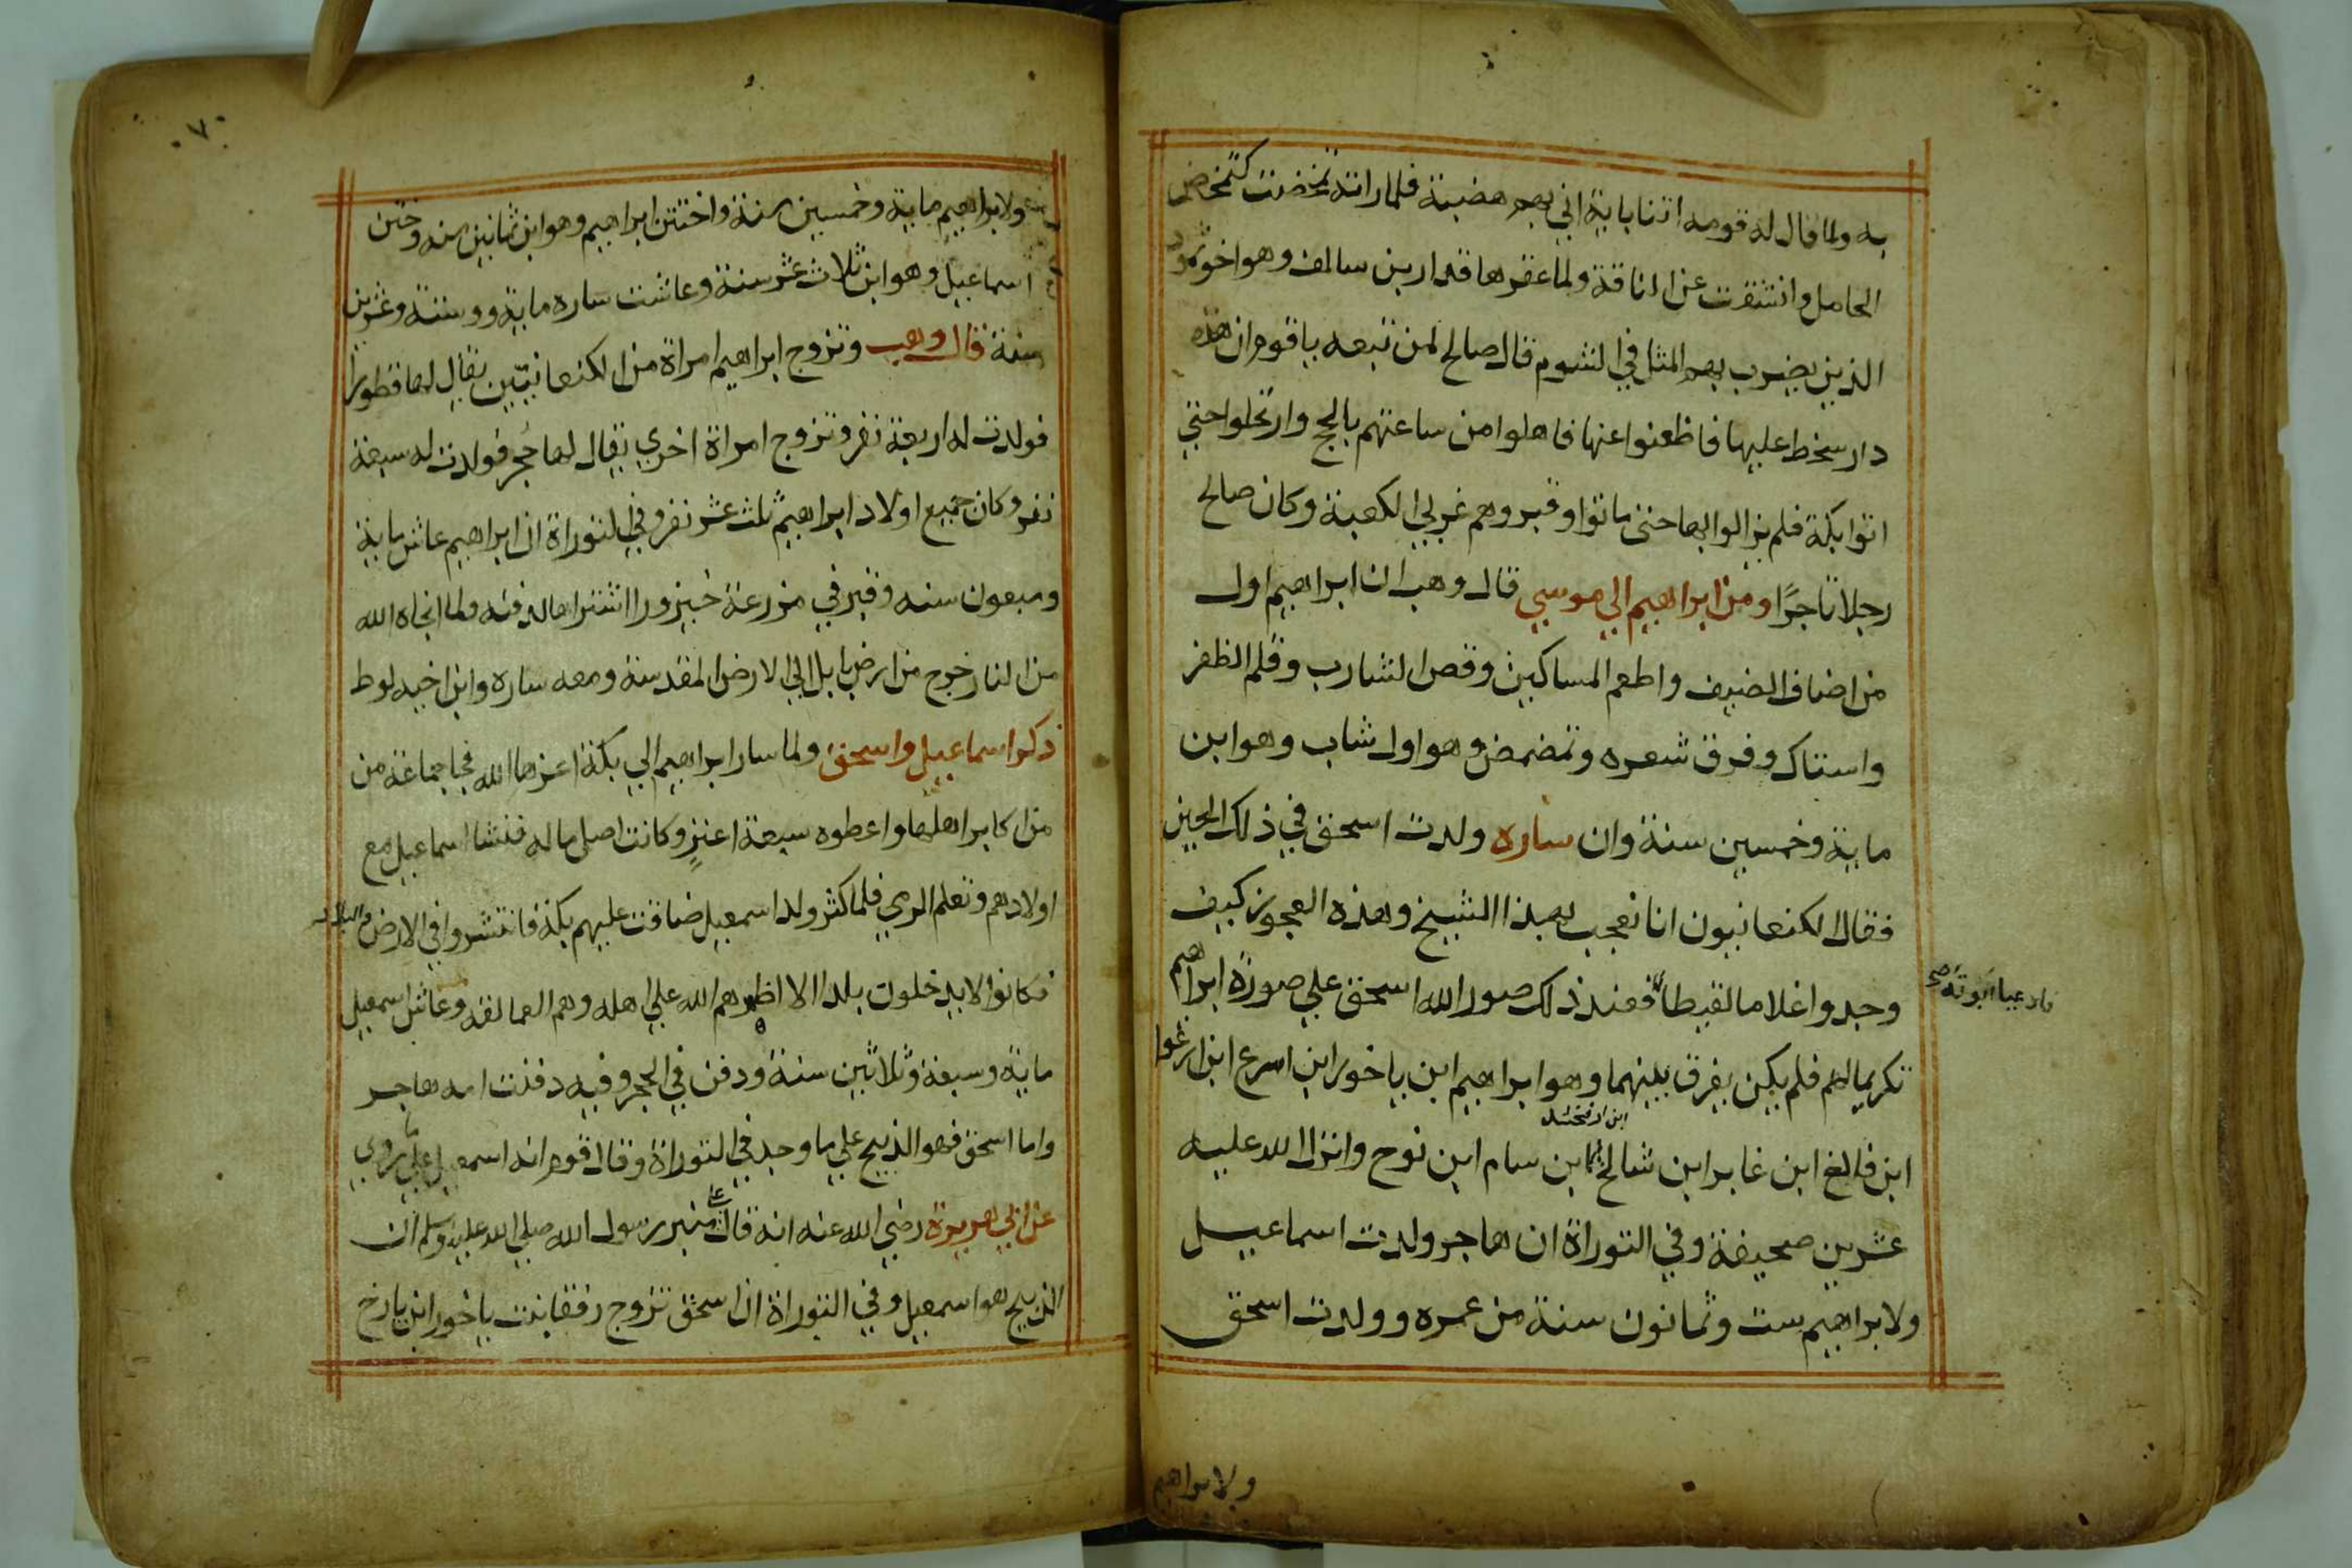 به ولما قال له قومه اتنا باية اتي بهم هضبة فلما راته تمخضت كتمخض
الحامل وانشقت عن الناقة ولما عقرها قدار بن سالف وهو اخو ثمود
الذين يضرب بهم المثل في الشوم قال صالح لمن تبعه ياقوم ان هذه
دار سخط عليها فاظعنوا عنها فاهلوا من ساعتهم بالحج وارتحلوا حتي
اتوا بكة فلم يزالوا بها حتى ماتوا وقبروهم غربي الكعبة وكان صالح
رجلا تاجرًا ومن ابراهيم الي موسي قال وهب ان ابراهيم اول
من اضاف الضيف واطعم المساكين وقص الشارب وقلم الظفر
واستاك وفرق شعره وتمضمض وهو اول شاب وهو ابن
ماية وخمسين سنة وان ساره ولدت اسحق في ذلك الحين
فقال الكنعانيون انا نعجب بهذا الشيخ وهذه العجوز كيف
وجدوا غلاما لقيطا فعند ذلك صور الله اسحق علي صورة ابراهيم
فادعيا ابوته صح
تكريما لهم فلم يكن يفرق بينهما وهو ابراهيم ابن ياخور ابن اسرع ابن ارغوا
ابن ارفخشد
ابن فالغ ابن غابر ابن شالخ ابن سام ابن نوح وانزل الله عليه
عشرين صحيفة وفي التوراة ان هاجر ولدت اسماعيل
ولابراهيم ست وثمانون سنة من عمره وولدت اسحق
ولابراهيم
٧
ولابراهيم ماية وخمسين سنة واختتن ابراهيم وهو ابن ثمانين سنه وختن
اسماعيل وهو ابن ثلاث عشر سنة وعاشت ساره ماية وستة وعشرين
سنة قال وهب وتزوج ابراهيم امراة من الكنعانيين يقال لها قطورا
فولدت له اربعة نفر وتزوج امراة اخري يقال لها حجر فولدت له سبعة
نفر وكان جميع اولاد ابراهيم ثلث عشر نفر وفي التوراة ان ابراهيم عاش ماية
وسبعون سنه وقبر في مزرعة خبزورا اشتراها لدفنه ولما انجاه الله
من النار خرج من ارض بابل الي الارض المقدسة ومعه ساره وابن اخيه لوط
ذكر اسماعيل واسحق ولما سار ابراهيم الي بكة اعزها الله فجا جماعة من
من اكابر اهلها واعطوه سبعة اعنز وكانت اصل ماله فنشا اسماعيل مع
اولادهم وتعلم الرمي فلما كثر ولد اسمعيل ضاقت عليهم بكة فانتشروا في الارض والبلاد
فكانوا لا يدخلون بلدا الا اظهرهم الله علي اهله وهم العمالقه وعاش اسمعيل
ماية وسبعة وثلاثين سنة ودفن في الحجر وفيه دفنت امه هاجر
واما اسحق فهو الذبيح علي ما وجد في التوراة وقال قوم انه اسمعيل علي ما روي
عن ابي هريرة رضي الله عنه انه قال علي منبر رسول الله صلي الله عليه وسلم ان
الذبيح هو اسمعيل وفي التوراة ان اسحق تزوج رفقا بنت ياخور ابن يارخ